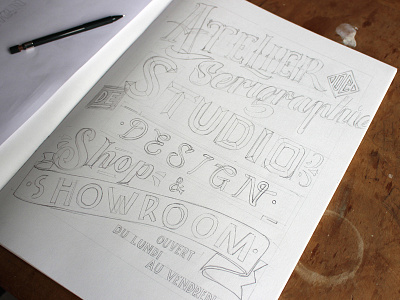 ATELIER
Serigraphie
DE
STUDIO
·DESIGN·
Shop &
·SHOWROOM·
OUVERT
DU LUNDI
AU VENDREDI